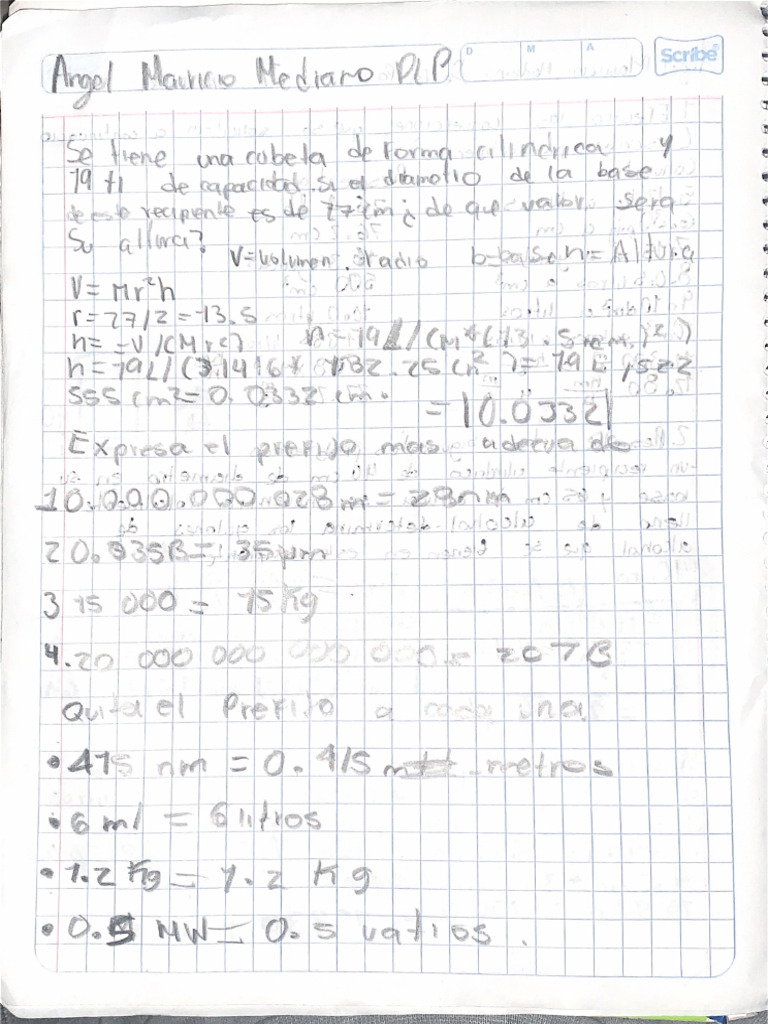 Angel Mauricio Mediano DLP
D M A
Scribe
Se tiene una cubeta de forma cilindrica y
19 de capacidad. si el de la base
de este recipiente es de 27cm ¿ de que valor sera
Su altura? V=volumen radio b=base h=Altura
V= Mr²h
r=27/2=-13.5
h= =V/(Mrc)
h=19L/(3.1416* 132.25cm²)=19L
555 cm²=0.0332 cm.
=|0.0332|
Expresa el prefijo mas de
10.000.000.028m=28nm
2 0.035B= 35µm
3 15 000= 15Kg
4.20 000 000 000 000.= 20TB
Quita el Prefijo a cada una
• 415 nm = 0.415 metros
• 6 ml = 6 litros
• 1.2 Kg = 1.2 Kg
• 0.5 MW= 0.5 vatios.